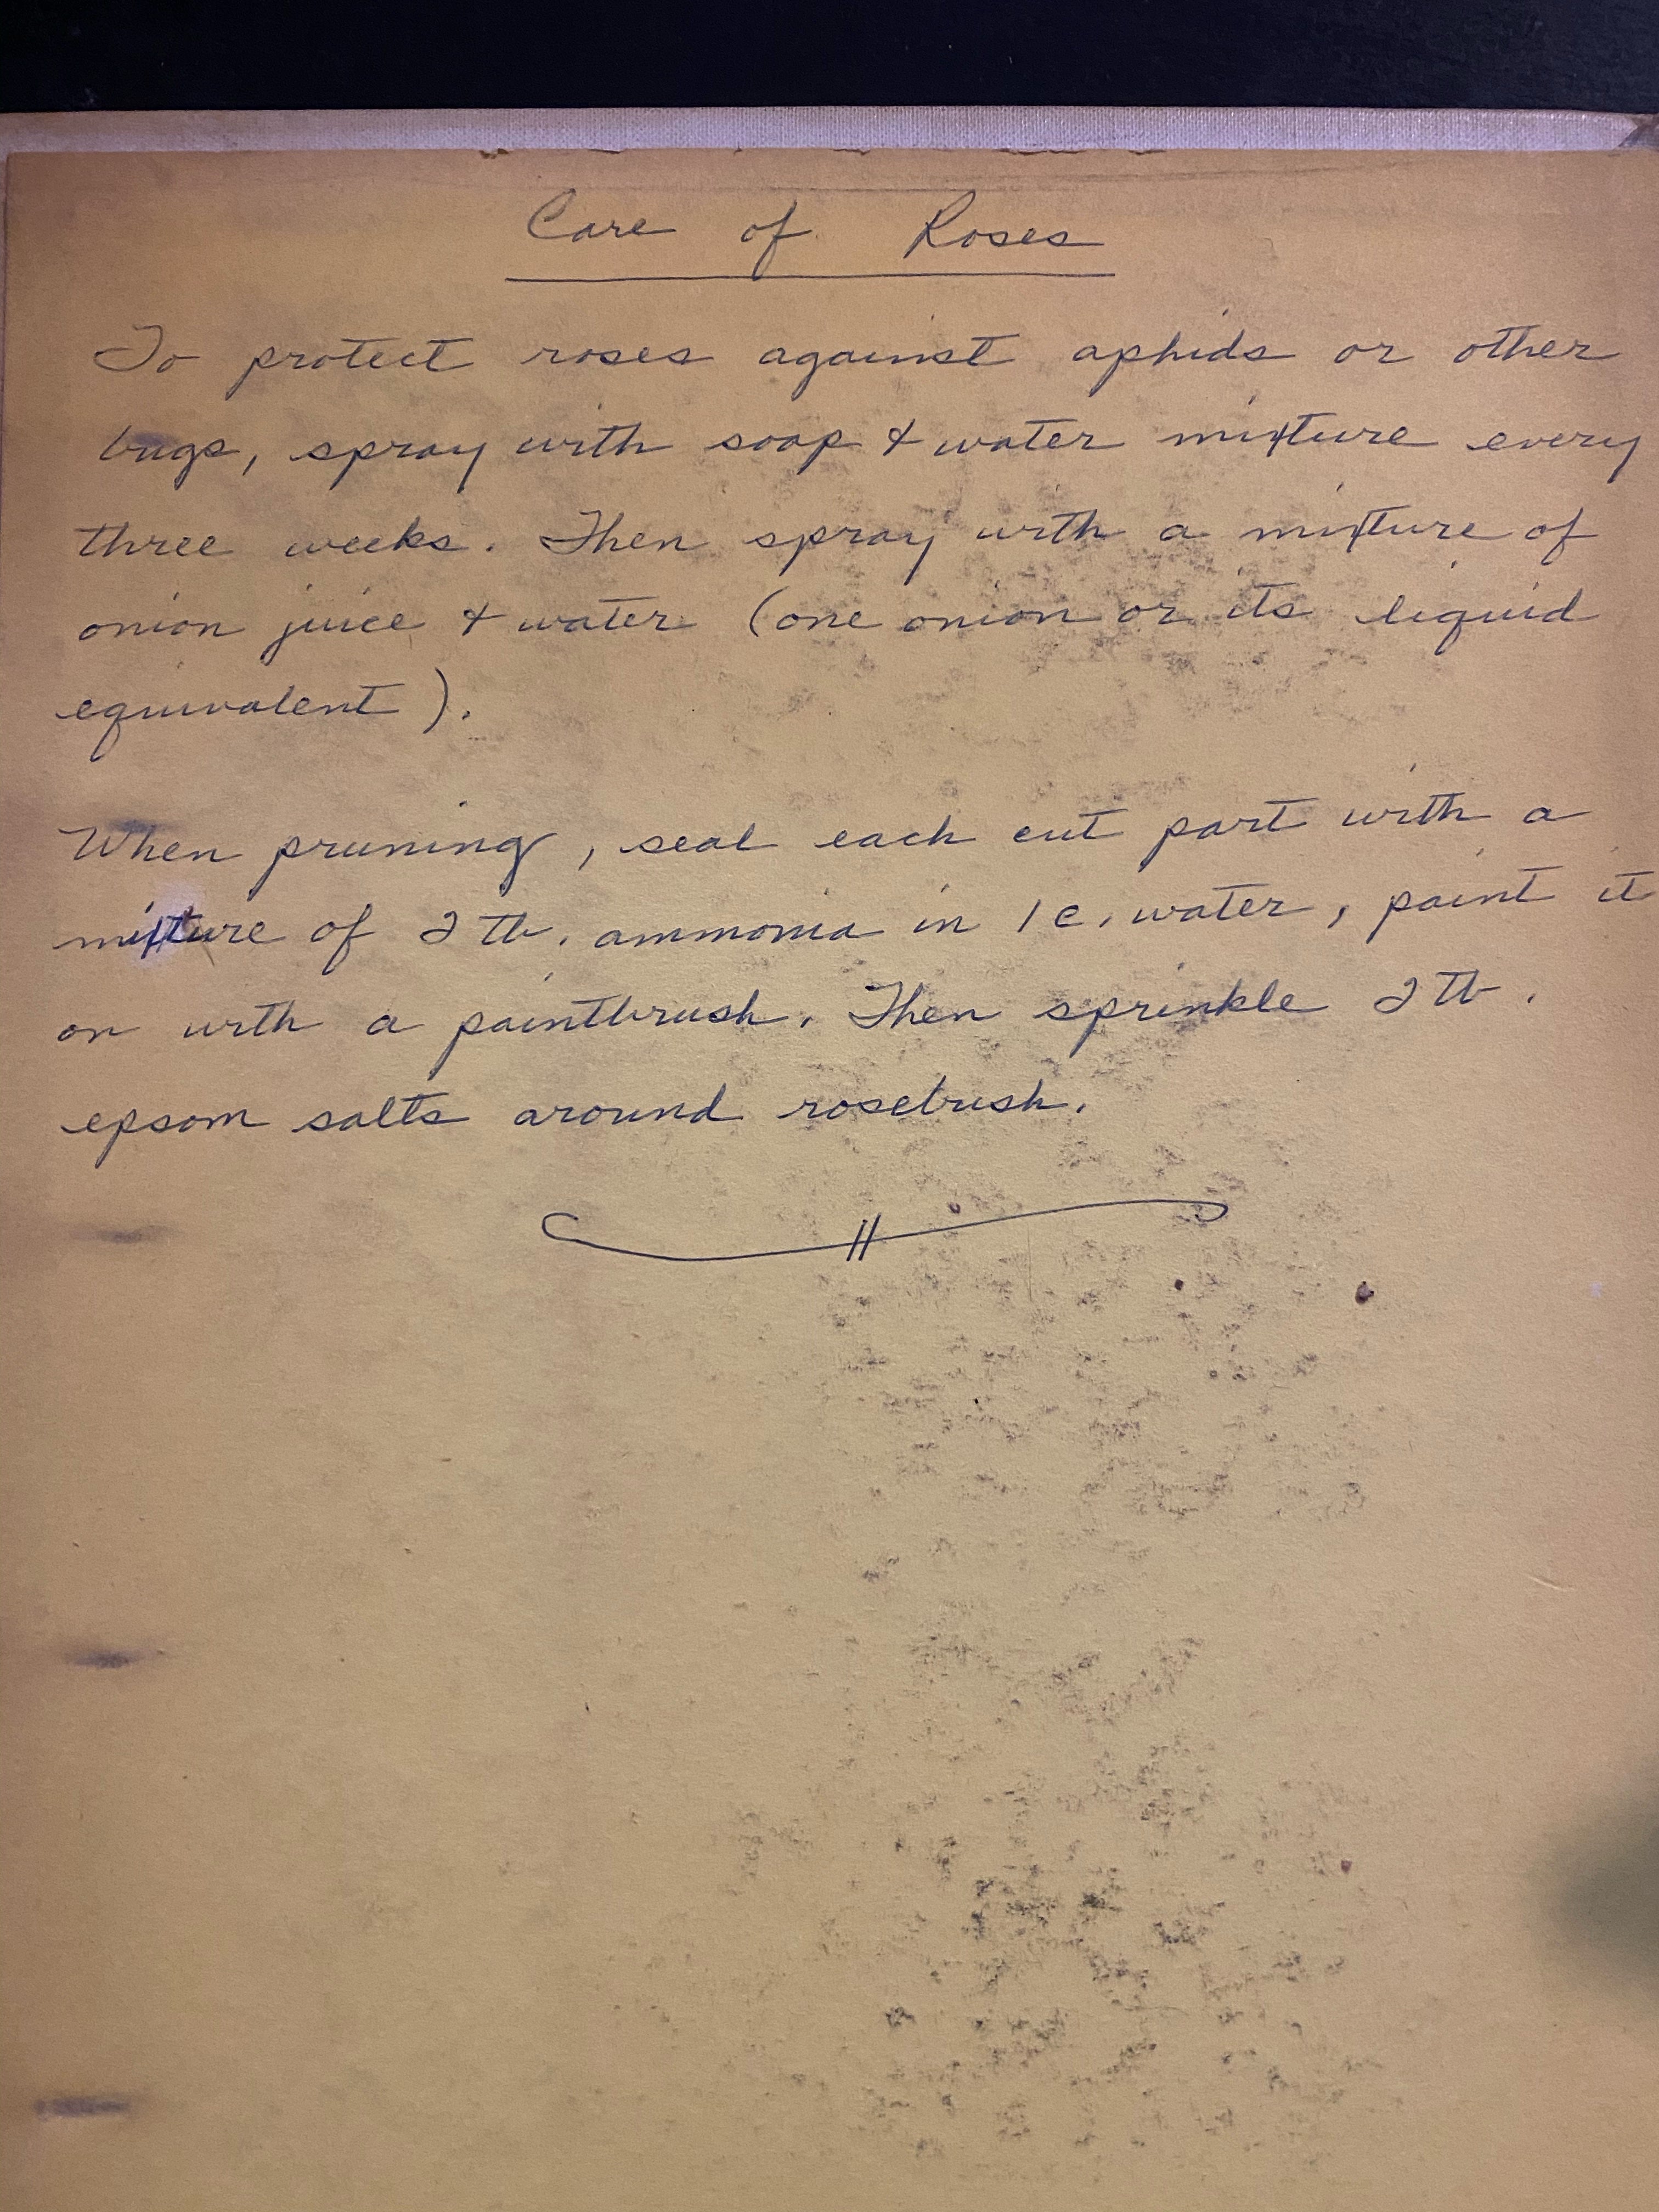 Care of Roses
To protect roses against aphids or other
bugs, spray with soap & water mixture every
three weeks. Then spray with a mixture of
onion juice & water (one onion or its liquid
equivalent).
When pruning, seal each cut part with a
mixture of 2 tb. ammonia in 1 c. water, paint it
on with a paintbrush. Then sprinkle 2 tb.
epsom salts around rosebush.